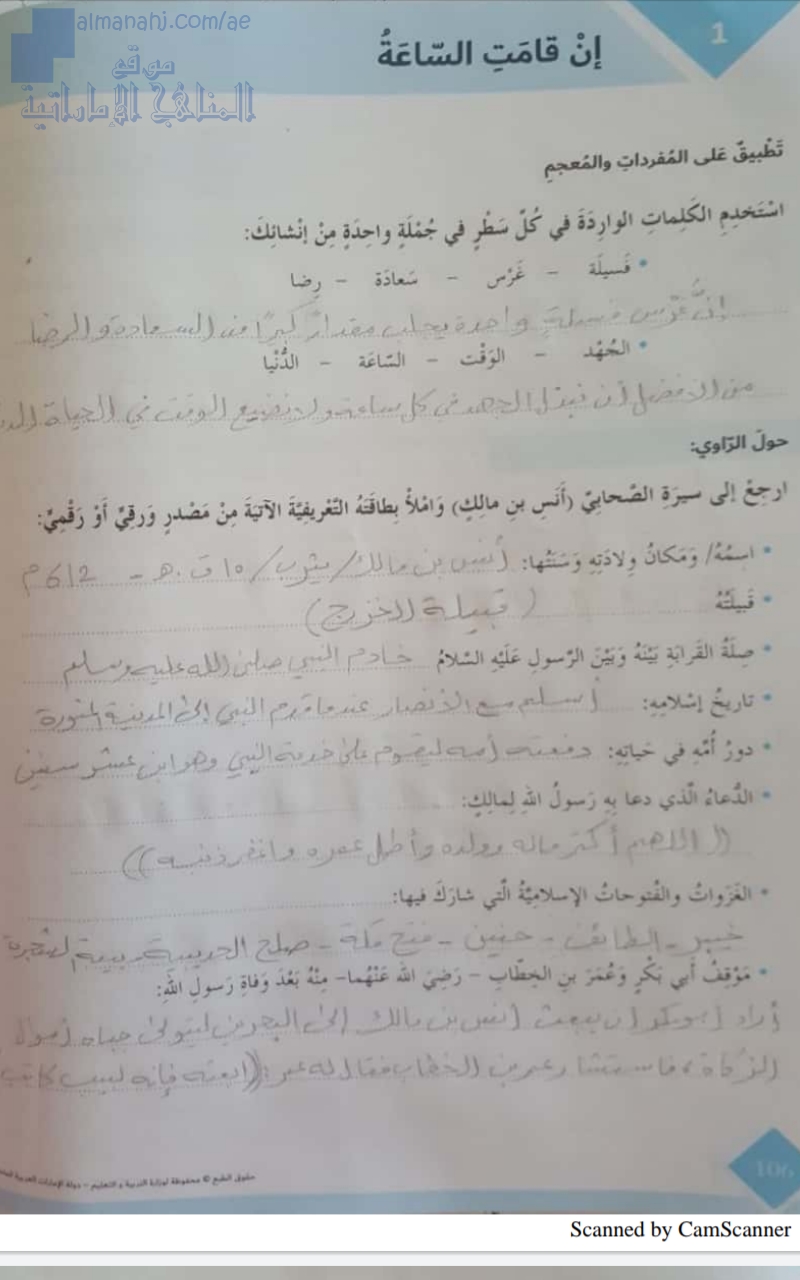 almanahj.com/ae
موقع
المناهج الإماراتية
1
إنْ قامَتِ السّاعَةُ
تَطْبيقٌ عَلى المُفرداتِ والمُعجمِ
اسْتَخدِمِ الكَلِماتِ الوارِدَةَ في كُلِّ سَطْرٍ في جُمْلَةٍ واحِدَةٍ مِنْ إنْشائِكَ:
• فَسيلَة – غَرْس – سَعادَة – رِضا
إنَّ غَرْس فسيلةٍ واحدة يجلب مقدارً كبيرًا من السعادة و الرضا
• الجُهْد – الوَقْت – السّاعَة – الدُّنْيا
من الافضل أن نبذل الجهد في كل ساعة ولا نضيع الوقت في الحياة
حولَ الرّاوي:
ارجِعْ إلى سيرَةِ الصَّحابيِّ (أَنَسِ بنِ مالِكٍ) وَامْلأْ بِطاقَتَهُ التَّعْريفيَّةَ الآتيَةَ مِنْ مَصْدَرٍ وَرقيٍّ أَوْ رَقْميٍّ:
• اسمُهُ/ وَمَكانُ وِلادَتِهِ وَسَنَتُها: أنس بن مالك/ يثرب/ ١٠ ق.هـ - 612 م
• قَبيلَتُهُ (قبيلة الخزرج)
• صِلَةُ القَرابَةِ بَيْنَهُ وَبَيْنَ الرَّسولِ عَلَيْهِ السَّلامُ خادم النبي صلى الله عليه وسلم
• تاريخُ إسْلامِهِ: أسلم مع الأنصار عندما قدم النبي إلى المدينة المنورة
• دورُ أُمِّهِ في حَياتِهِ: دفعته أمه ليقوم على خدمة النبي وهو ابن عشر سنين
• الدُّعاءُ الَّذي دعا بِهِ رَسولُ اللهِ لِمالِكٍ:
(( اللهم أكثر ماله وولده وأطل عمره واغفر ذنبه ))
• الغَزَواتُ والفُتوحاتُ الإسلاميَّةُ الَّتي شارَكَ فيها:
خيبر - الطائف - حنين - فتح مكة - صلح الحديبية - بيعة الشجرة
• مَوْقِفُ أَبي بَكْرٍ وَعُمَرَ بنِ الخطّابِ – رَضِيَ الله عَنْهُما– مِنْهُ بَعْدَ وَفاةِ رَسولِ اللهِ:
أراد أبو بكر أن يبعث أنس بن مالك إلى البحرين ليتولى جباه أموال
الزكاة، فاستشار عمر بن الخطاب فقال له عمر: ((ابعثه فإنه لبيب كاتب
106
حقوق الطبع © محفوظة لوزارة التربية و التعليم – دولة الإمارات العربية
Scanned by CamScanner